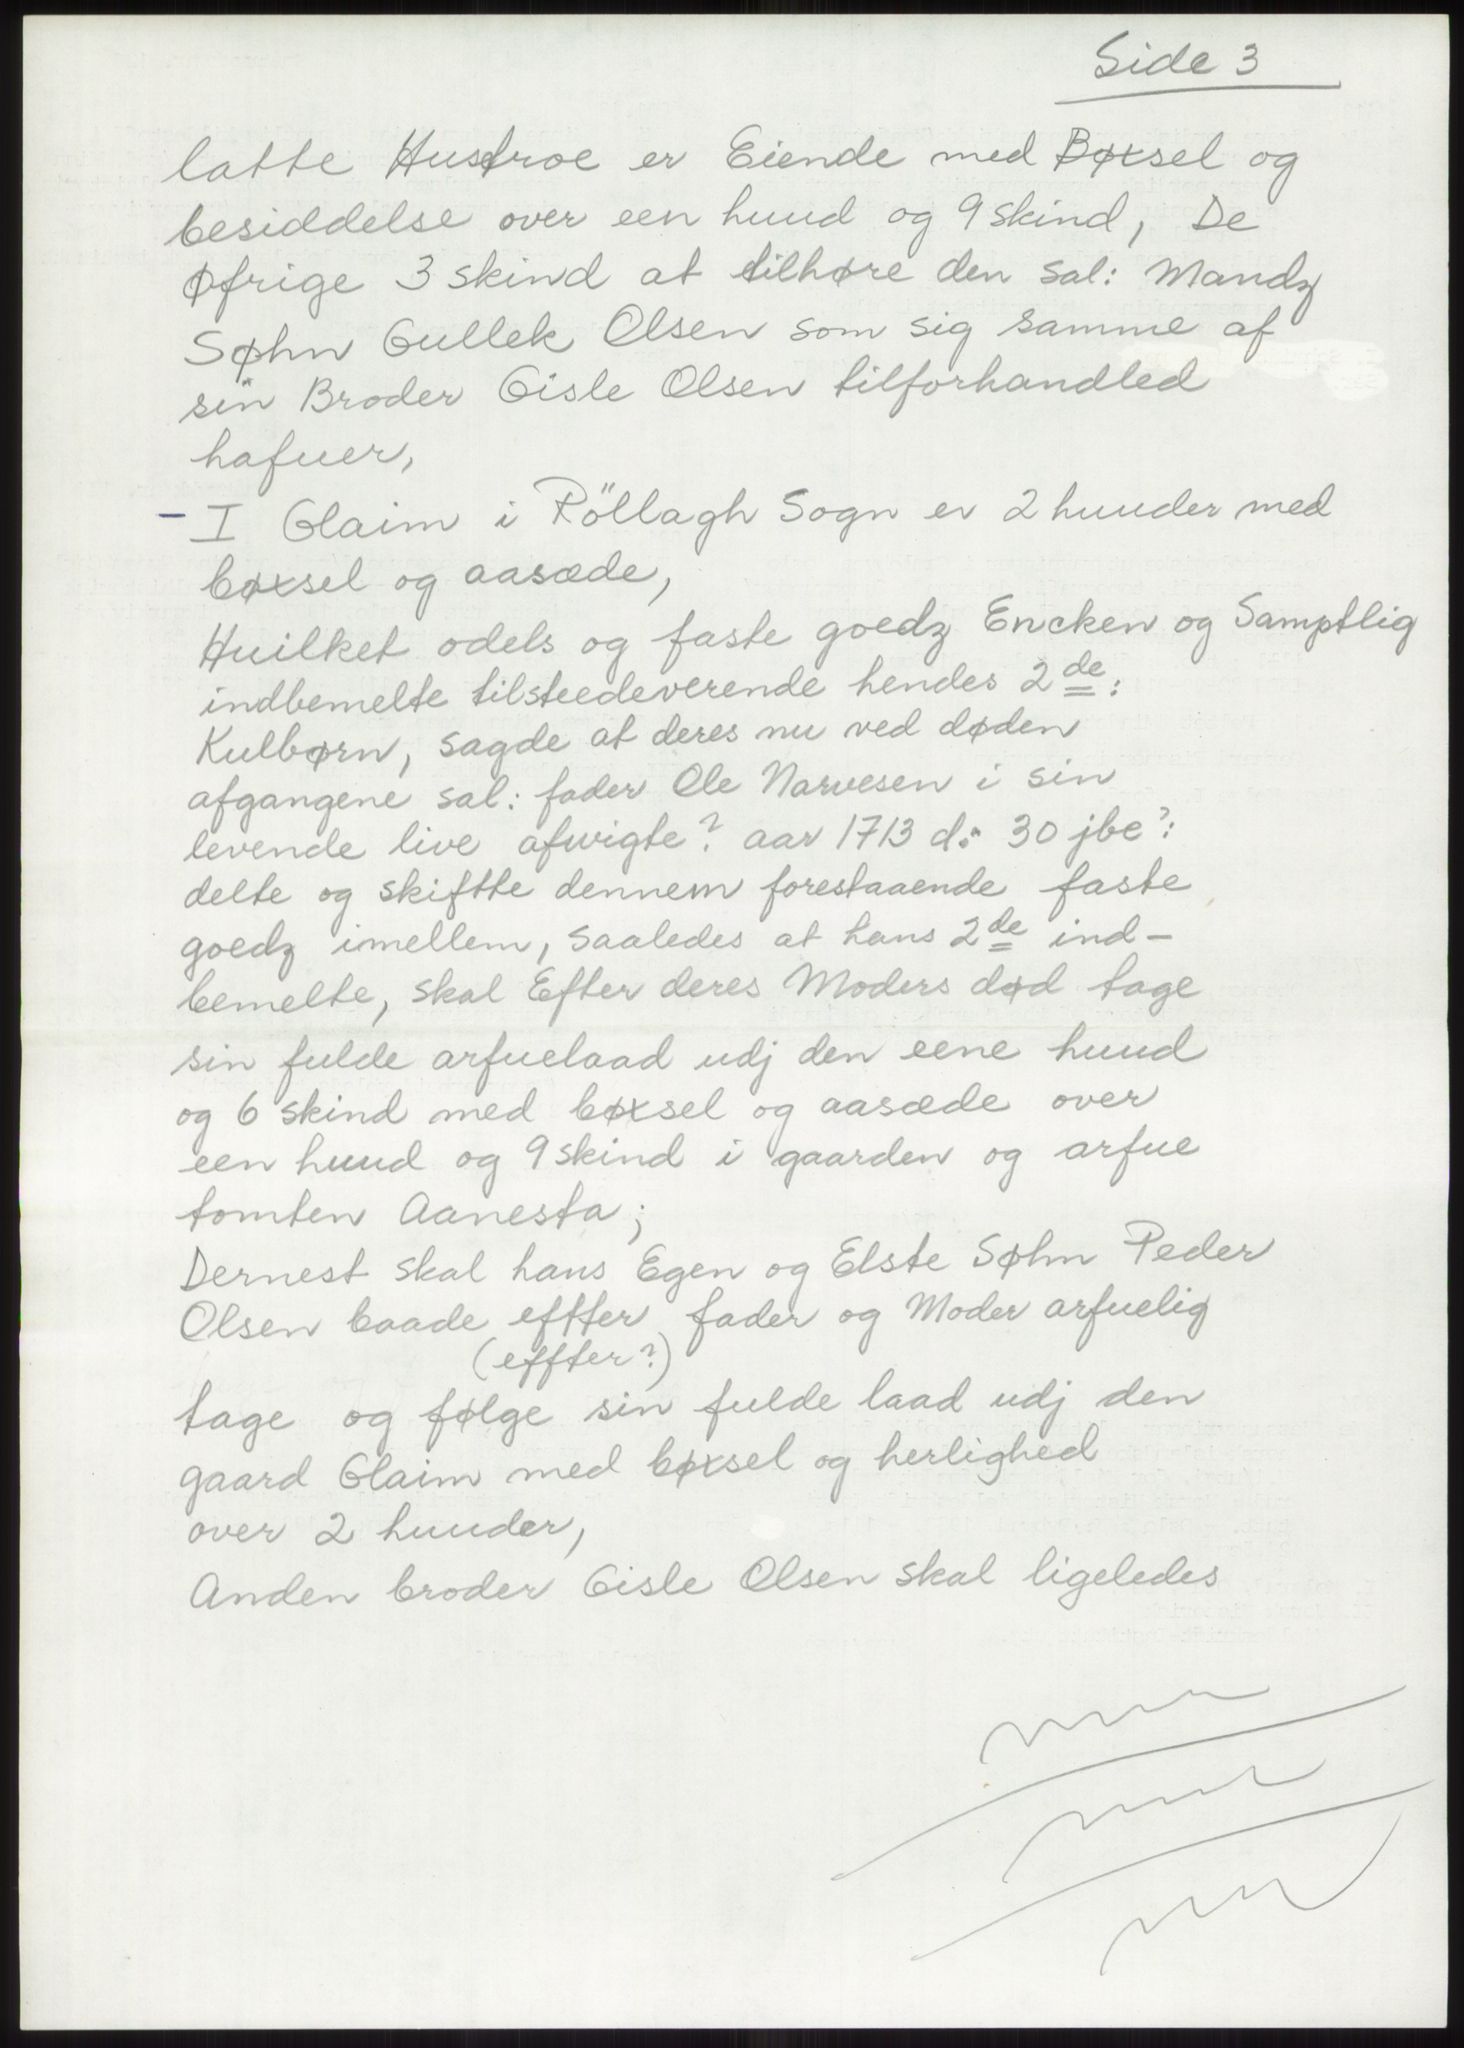 Side 3
latte Hustroe er Eiende med Bøxsel og
besiddelse over een huud og 9 skind, De
øfrige 3 skind at tilhøre den sal: Mandz
Søhn Gullek Olsen som sig samme af
sin Broder Gisle Olsen tilforhandled
hafuer,
- I Glaim i Röllagh Sogn er 2 huuder med
bøxsel og aasæde,
Huilket odels og faste goedz Encken og Samptlig
indbemelte tilsteedeverende hendes 2de:
Kulbørn, sagde at deres nu ved døden
afgangene sal: fader Ole Narvesen i sin
levende live afwigte? aar 1713 d: 30 jbe?:
delte og skiftte dennem forestaaende faste
goedz imellem, saaledes at hans 2de ind-
bemelte, skal Efter deres Moders død tage
sin fulde arfuelaad udj den eene huud
og 6 skind med bøxsel og aasæde over
een huud og 9 skind i gaarden og arfue
tomten Aanesta;
Dernest skal hans Egen og Elste Søhn Peder
Olsen baade effter fader og Moder arfuelig
(effter?)
tage og følge sin fulde laad udj den
gaard Glaim med bøxsel og herlighed
over 2 huuder,
Anden broder Gisle Olsen skal ligeledes